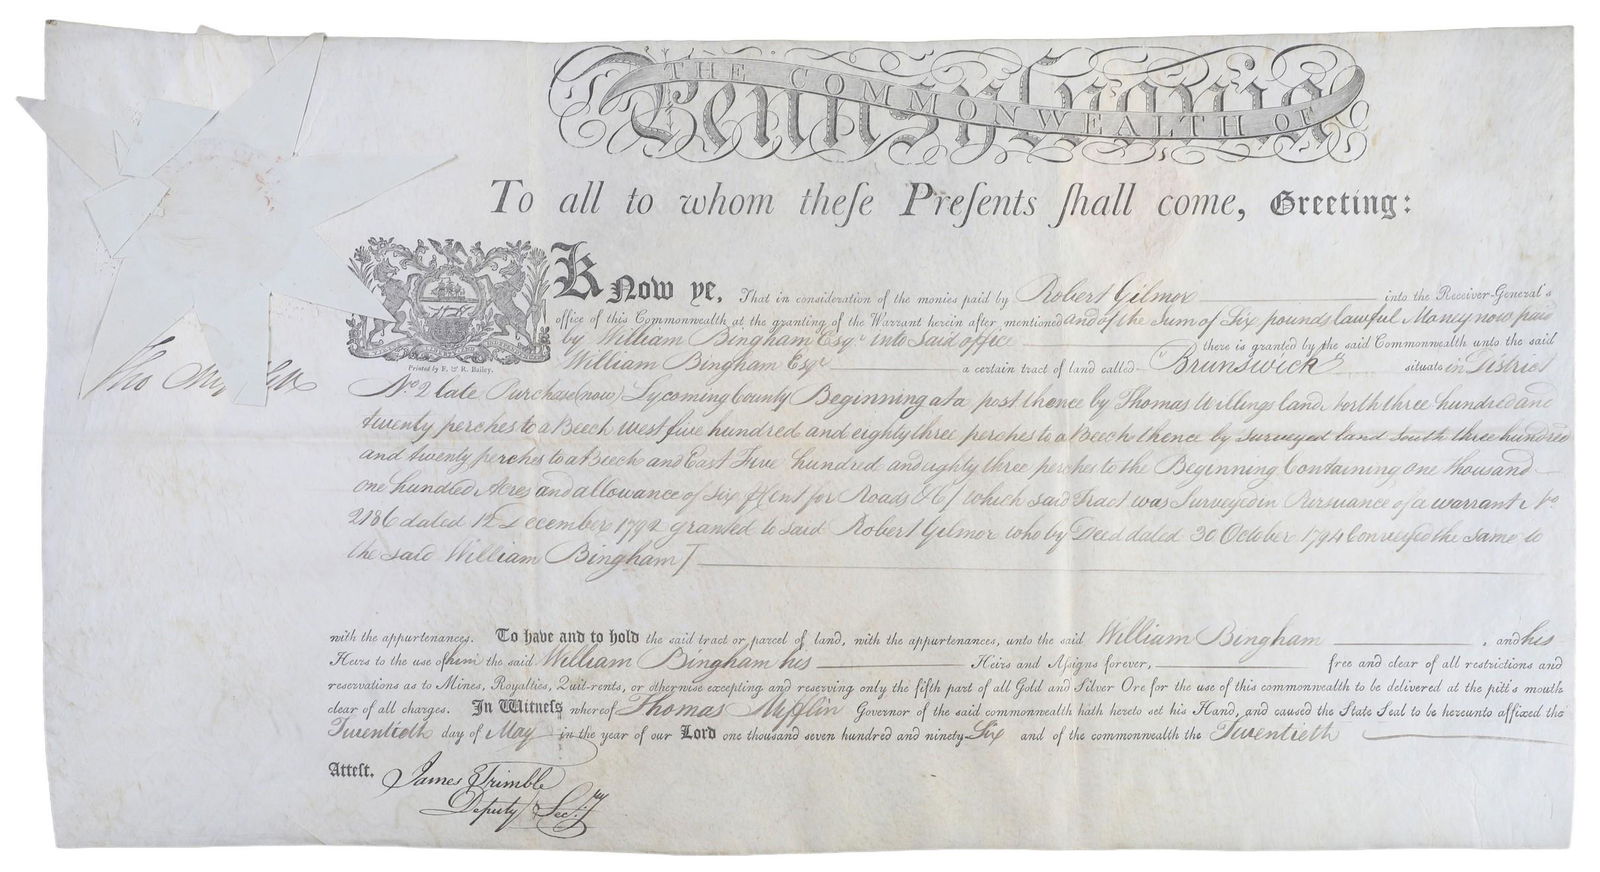 THE COMMONWEALTH OF
Pennsylvania
To all to whom theſe Preſents ſhall come, Greeting:
Know ye, That in consideration of the monies paid by Robert Gilmor into the Receiver-General's
office of this Commonwealth at the granting of the Warrant herein after mentioned and of the Sum of Six pounds lawful Money now paid
by William Bingham Esqr into said office there is granted by the said Commonwealth unto the said
William Bingham Esqr a certain tract of land called "Brunswick" situate in District
Printed by F. & R. Bailey.
Tho Mifflin
No 2 late Purchase (now) Lycoming County Beginning at a post thence by Thomas Willings land North three hundred and
twenty perches to a Beech West five hundred and eighty three perches to a Beech thence by surveyed land South three hundred
and twenty perches to a Beech and East Five hundred and eighty three perches to the Beginning Containing one thousand
one hundred Acres and allowance of six ⅌ Cent for Roads &c/ which said Tract was Surveyed in Pursuance of a warrant No
2186 dated 12 December 1792 granted to said Robert Gilmor who by Deed dated 30 October 1794 Conveyed the same to
the said William Bingham
with the appurtenances. To have and to hold the said tract or parcel of land, with the appurtenances, unto the said William Bingham, and his
Heirs to the use of him the said William Bingham his Heirs and Aſsigns forever, free and clear of all restrictions and
reservations as to Mines, Royalties, Quit-rents, or otherwise excepting and reserving only the fifth part of all Gold and Silver Ore for the use of this commonwealth to be delivered at the pitt's mouth
clear of all charges. In Witneſs whereof Thomas Mifflin Governor of the said commonwealth hath hereto set his Hand, and caused the State Seal to be hereunto affixed the
Twentieth day of May in the year of our Lord one thousand seven hundred and ninety-Six and of the commonwealth the Twentieth
Atteſt. James Trimble
Deputy Secry